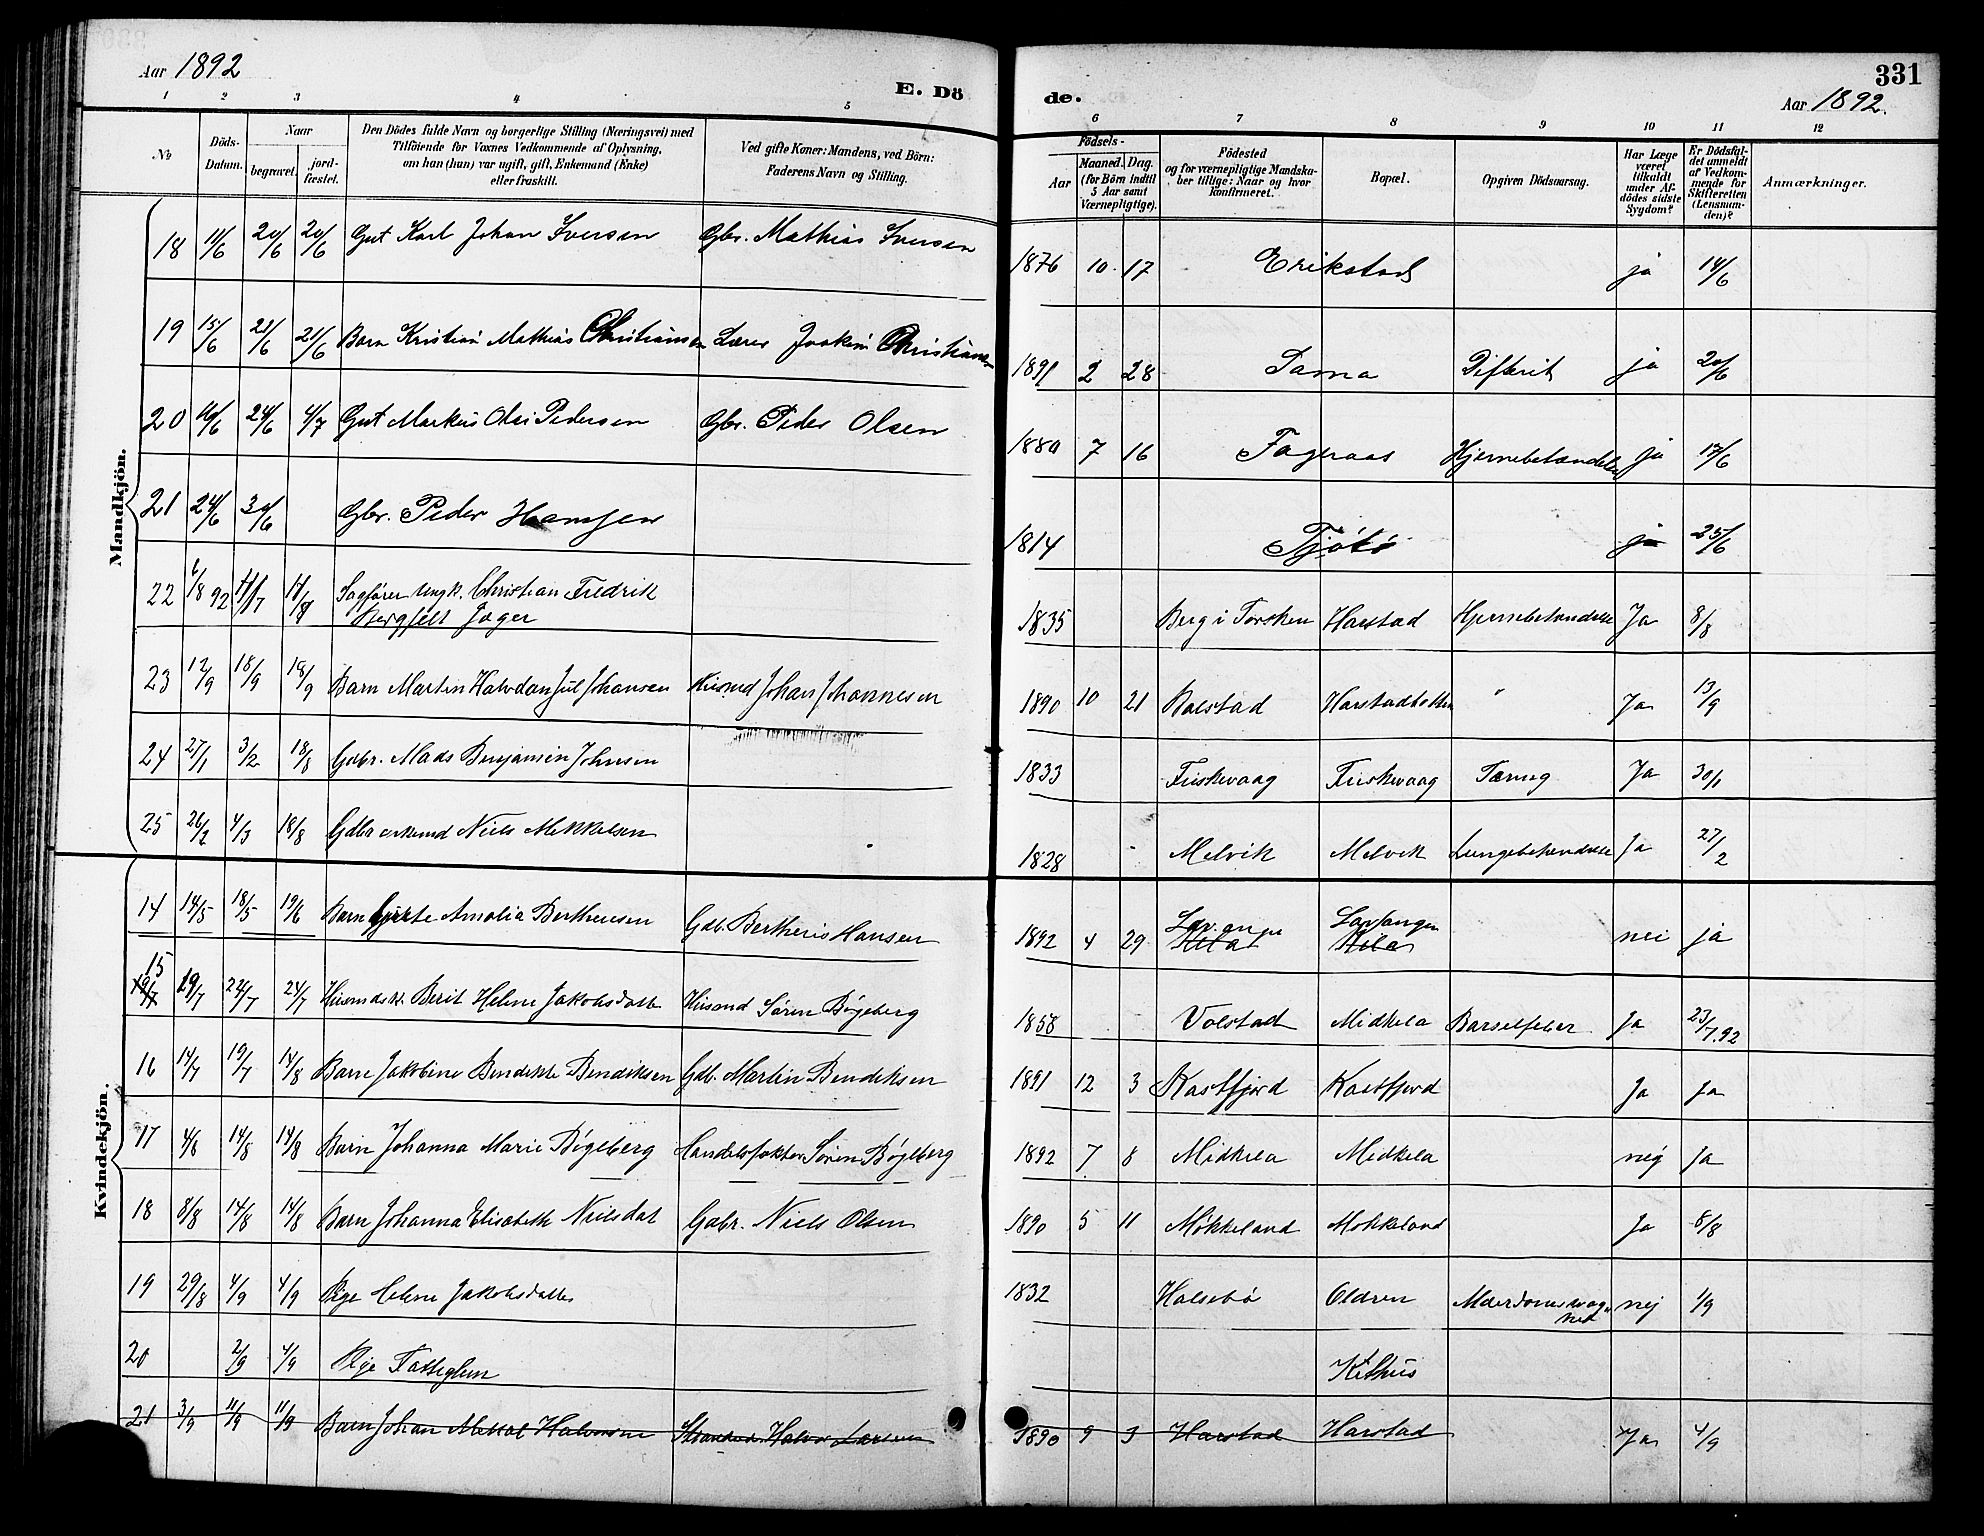 Aar 1892
E. Dö
de.
331
Aar 1892.
1 2 3 4 5 6 7 8 9 10 11 12
№
Döds-
Datum.
Naar
begravet.
jord-
fæstet.
Den Dödes fulde Navn og borgerlige Stilling (Næringsvei) med
Tilföiende for Voxnes Vedkommende af Oplysning,
om han (hun) var ugift, gift, Enkemand (Enke)
eller fraskilt.
Ved gifte Koner: Mandens, ved Börn:
Faderens Navn og Stilling.
Födsels-
Aar
Maaned. Dag.
(for Börn indtil
5 Aar samt
Værnepligtige).
Födested
og for værnepligtige Mandska-
ber tillige: Naar og hvor
konfirmeret.
Bopæl.
Opgiven Dödsaarsag.
Har Læge
været
tilkaldt
under Af-
dödes sidste
Sygdom?
Er Dödsfal-
det anmeldt
af Vedkom-
mende for
Skifteretten
(Lensman-
den)?
Anmærkninger.
Mandkjön.
18 11/6 20/6 20/6 Gut Karl Johan Iversen Gbr. Mathias Iversen 1876 10 17 Erikstad ja 14/6
19 15/6 21/6 21/6 Barn Kristian Mathias Christiansen Lærer Joakim Christiansen 1891 2 28 Sama Difterit ja 20/6
20 16/6 24/6 4/7 Gut Markus Olai Pedersen Gbr. Peder Olsen 1880 7 16 Fageraas Hjernebetændelse ja 17/6
21 24/6 30/6 Gbr. Peder Hansen 1814 Tjøtø ja 25/6
22 6/8 92 Sagfører Ungk. Christian Fredrik
Bergfelt Jæger 1835 Berg i Torsken Harstad Hjernebetændelse Ja 8/8
23 12/9 18/9 18/9 Barn Martin Halvdan Jul Johansen Husmd Johan Johannesen 1890 10 21 Harstadbotten " Ja 13/9
24 27/1 3/2 18/8 Gdbr. Mads Benjamin Johnsen 1833 Fuskevaag Fuskevaag Tæring Ja 30/1
25 26/2 4/3 18/8 Gdbr enkemd Niels Mekkelsen 1828 Melvik Melvik Lungebetændelse Ja 27/2
Kvindekjön.
14 14/5 18/5 19/6 Barn Amalia Bertheusen Gdb. Bertheus Hansen 1892 4 29 Lavangen Kila nei ja
15 19/7 22/7 24/7 Husmdsk. Berit Helene Jakobsdatter Husmd Søren Bøgeberg 1858 Volstad Midkila Barselfeber Ja 23/7.92
16 14/7 19/7 14/8 Barn Jakobine Bendikte Bendiksen Gdb. Martin Bendiksen 1891 12 3 Kastfjord Kastfjord Ja Ja
17 4/8 14/8 14/8 Barn Johanna Marie Bøgeberg Handelsfaktor Søren Bøgeberg 1892 7 8 Midkila Midkila nej Ja
18 8/8 14/8 14/8 Barn Johanna Elisabeth Nielsdat Gabr. Niels Olsen 1890 5 11 Møkkeland Møkkeland Ja 8/8
19 29/8 4/9 4/9 Pige Helene Jakobsdatter 1832 Halsebø Oldren Alderdomssvag-
hed nej 1/9
20 2/9 4/9 Pige Fattiglem
21 3/9 11/9 11/9 Barn Johan Mekal Halvorsen Strandsd. Halvor Larsen 1890 9 3 Harstad Harstad Ja 4/9